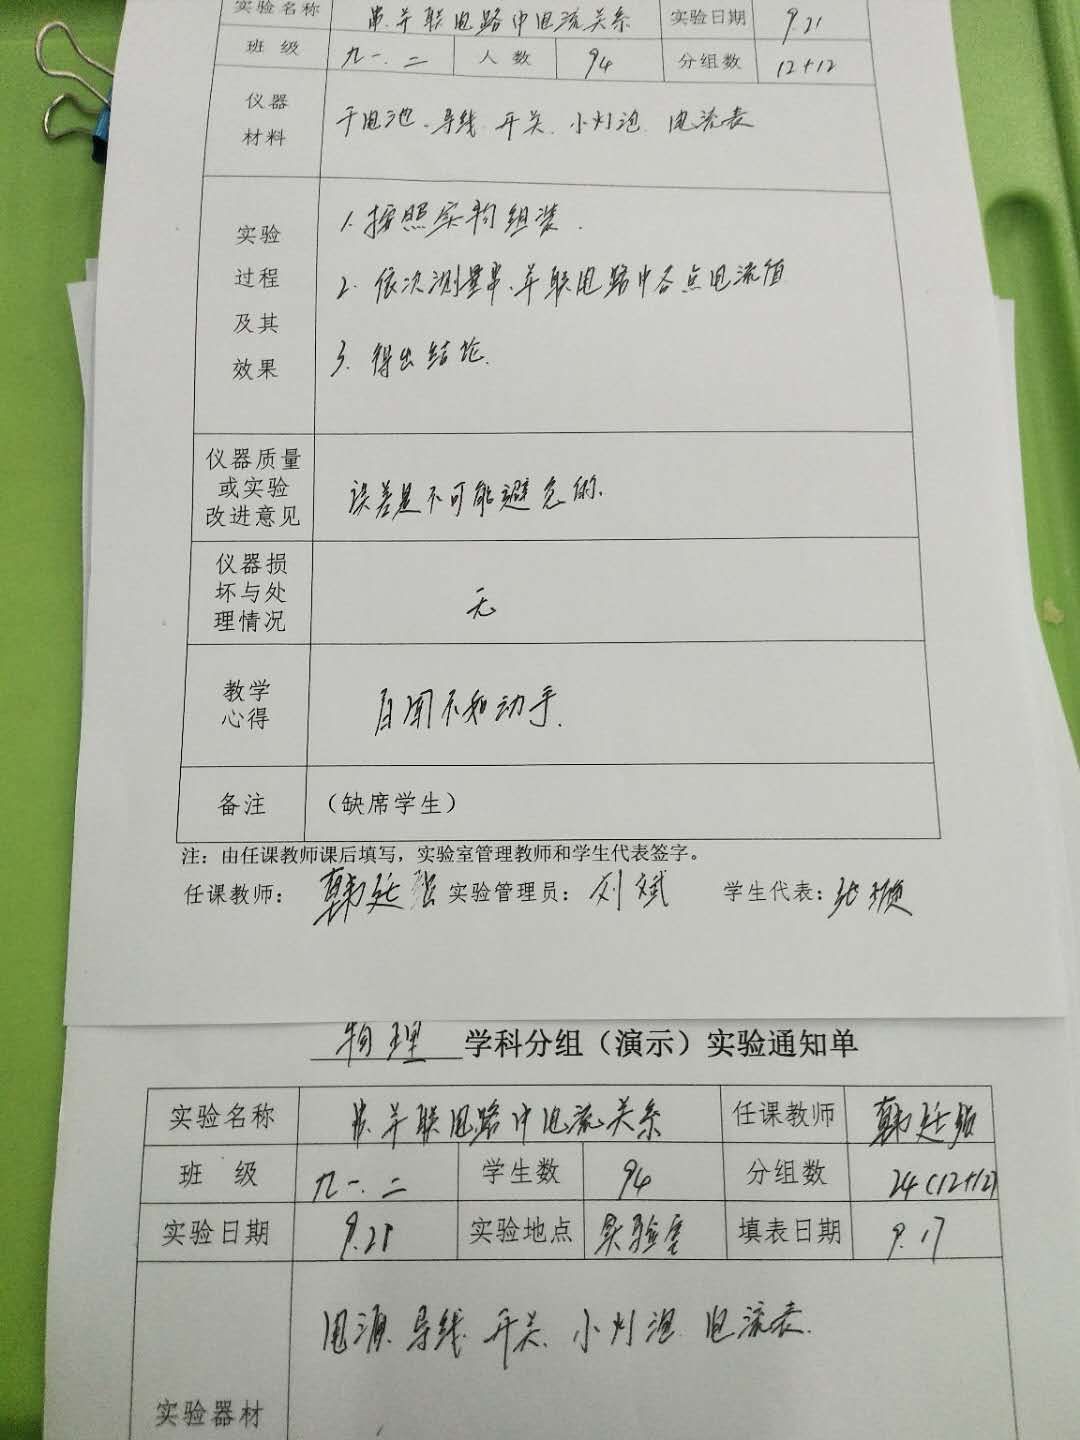 实验名称 串.并联电路中电流关系 实验日期 9.21
班 级 九一.二 人 数 94 分组数 12+12
仪器
材料
干电池.导线.开关.小灯泡.电流表
实验
过程
及其
效果
1.按照实物组装.
2.依次测量串.并联电路中各点电流值
3.得出结论.
仪器质量
或实验
改进意见
误差是不可能避免的.
仪器损
坏与处
理情况
无
教学
心得
百闻不如动手.
备注 (缺席学生)
注：由任课教师课后填写，实验室管理教师和学生代表签字。
任课教师： 韩延强 实验管理员： 刘斌 学生代表：
物理 学科分组（演示）实验通知单
实验名称 串.并联电路中电流关系 任课教师 韩延强
班 级 九一.二 学生数 94 分组数 24(12+12)
实验日期 实验地点 实验室 填表日期 9.17
电源.导线.开关.小灯泡.电流表.
实验器材